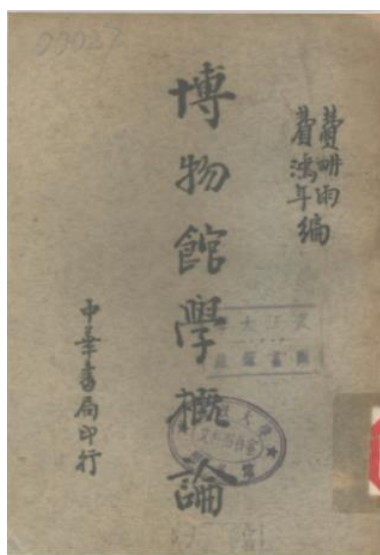 費畊雨
費鴻年編
博物館學概論
中華書局印行